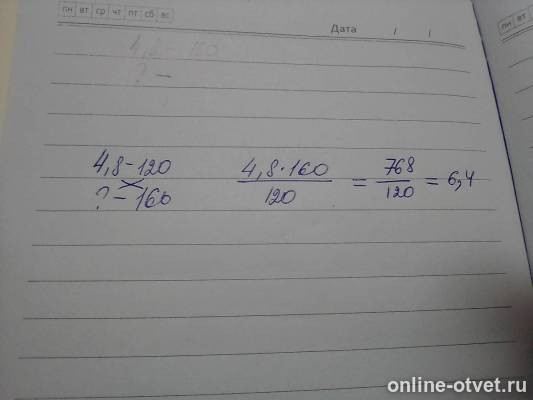 пн вт ср чт пт сб вс
Дата / /
пн вт
4,8 - 120
? - 160
4,8·160/120 = 768/120 = 6,4
online-otvet.ru